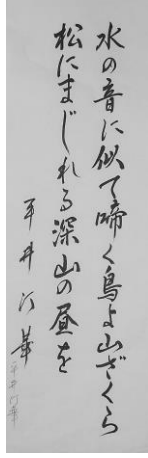 水の音に似て啼く鳥よ山ざくら
松にまじれる深山の昼を
平井 華